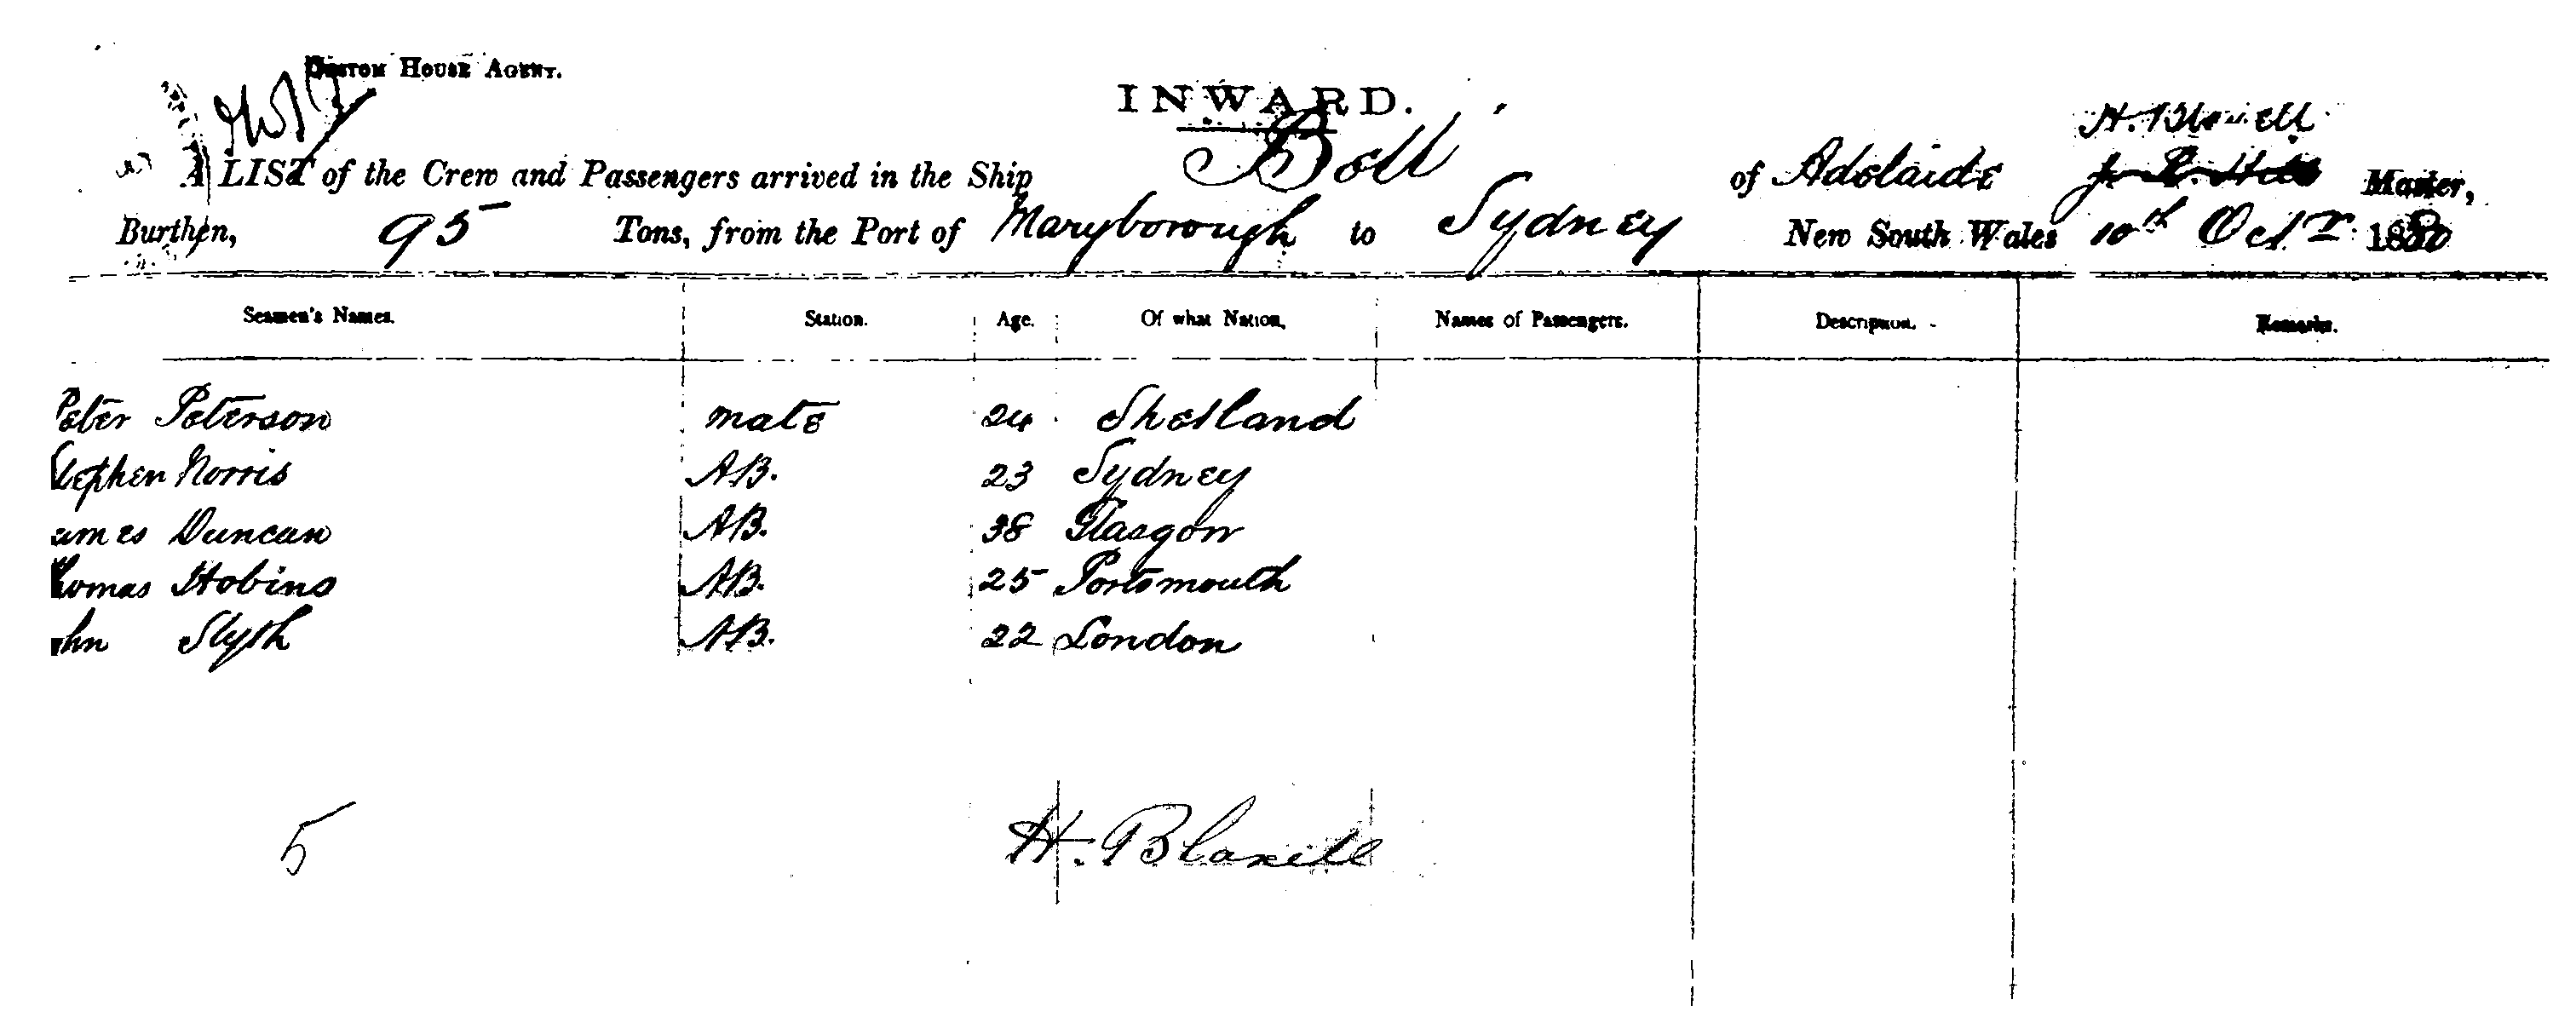 CUSTOM HOUSE AGENT.
INWARD.
A LIST of the Crew and Passengers arrived in the Ship Bell of Adelaide Master,
Burthen, 95 Tons, from the Port of Maryborough to Sydney New South Wales 10th Octr 1880
Seamen's Names. Station. Age. Of what Nation. Names of Passengers. Description. Remarks.
Peter Peterson mate 24 Shetland
Stephen Norris AB. 23 Sydney
ames Duncan AB. 38 Glasgow
homas Hobins AB. 25 Portsmouth
ohn Slyth AB. 22 London
5 H.